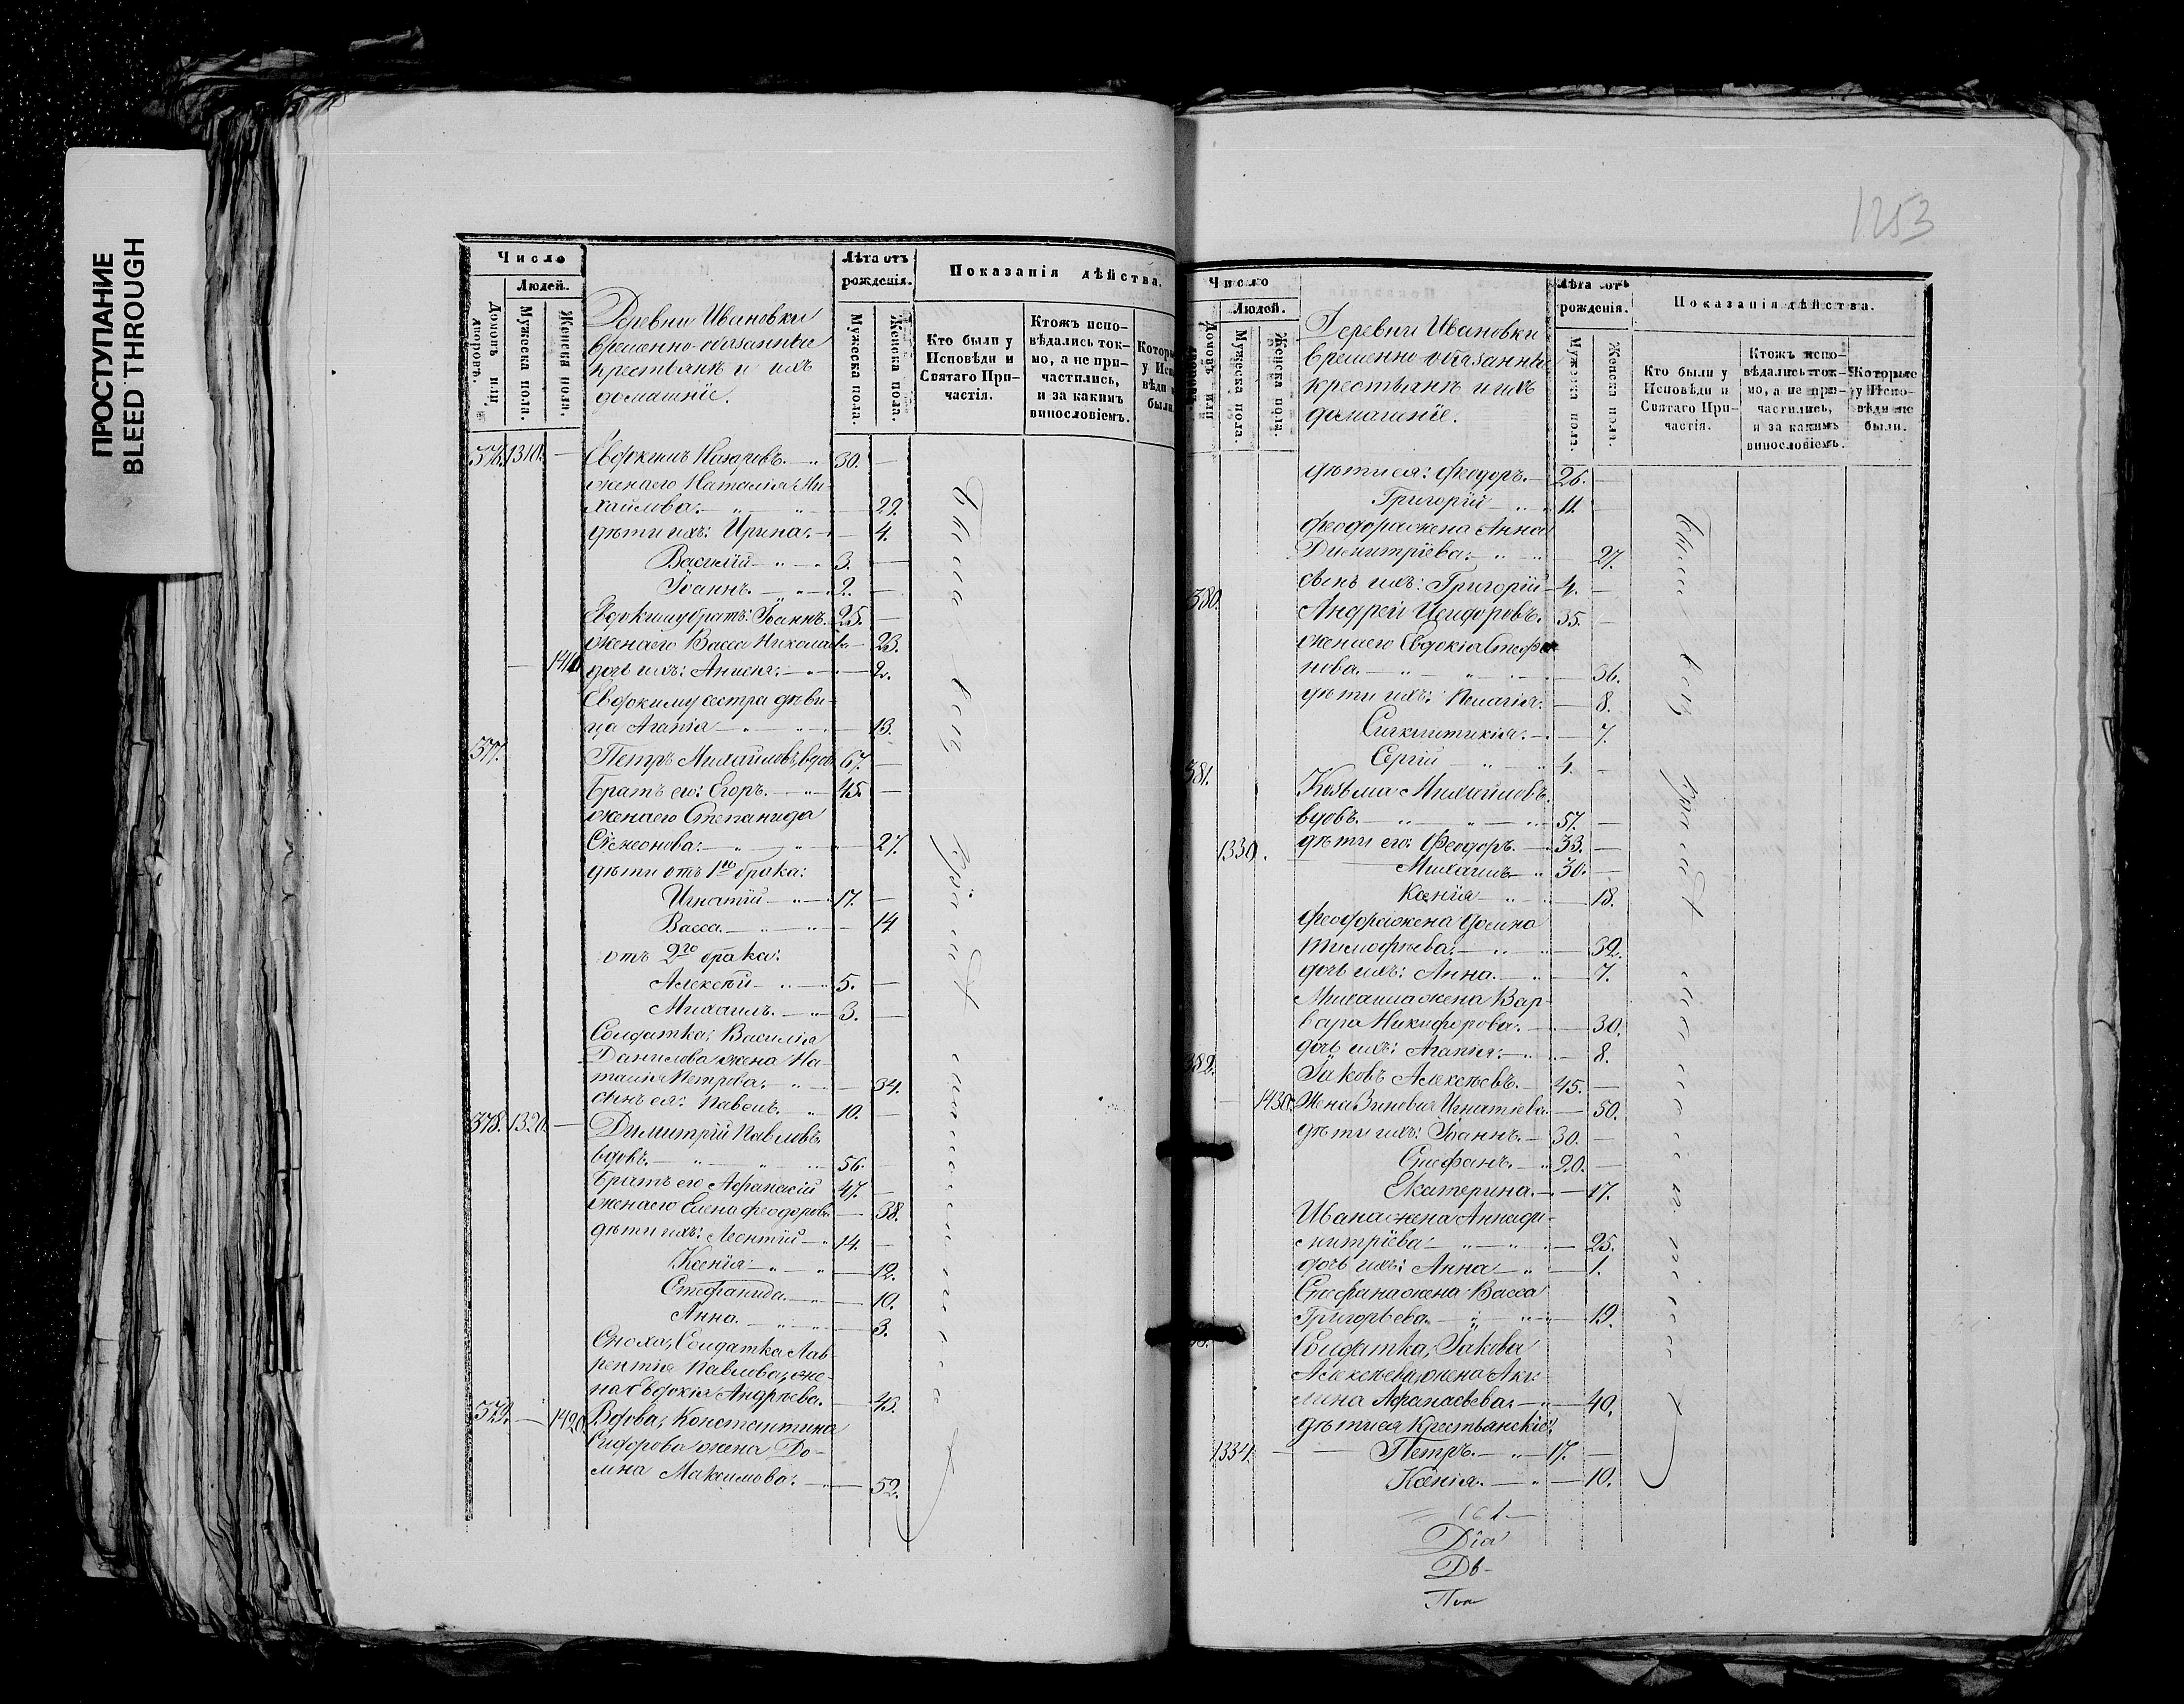 ПРОСТУПАНИЕ
BLEED THROUGH
1253
Число
Людей.
Домовъ или дворовъ.
Мужеска пола.
Женска пола.
Деревни Ивановки
временно-обязанные
крестьяне и ихъ
домашніе.
Лѣта отъ
рожденія.
Мужеска пола.
Женска пола.
Показанія дѣйства.
Кто были у
Исповѣди и
Святаго При-
частія.
Ктожъ испо-
вѣдались ток-
мо, а не при-
частились,
и за какимъ
винословіемъ.
Которые
у Испо-
вѣди не
были.
376. 1310. — Евдокимъ Назаровъ. — 30. —
жена его Наталія Ми-
хайлова. — 29.
дѣти ихъ: Ирина. — 4.
Василій — 3. —
Іоаннъ. — 2. —
Евдокиму братъ: Іоаннъ. 25. —
жена его Васса Николаева — 23.
— 1410 дочь ихъ: Анисія. — 2.
Евдокиму сестра дѣви-
ца Агапія — 13.
377. Петръ Михайловъ, вдов. 67. —
Братъ его: Егоръ. — 45. —
жена его Степанида
Симеонова. — 27.
дѣти отъ 1го брака:
Игнатій — 17. —
Васса. — 14
отъ 2го брака:
Алексѣй — 5. —
Михаилъ. — 3. —
Солдатка, Василія
Данилова жена На-
талія Петрова. — 34.
сынъ ея: Павелъ. — 10. —
378. 1320. — Димитрій Павловъ
вдовъ. — 56. —
Братъ его Афанасій 47. —
жена его Елена Феодорова — 38.
дѣти ихъ: Леонтій — 14. —
Ксенія — 12.
Стефанида. — 10.
Анна. — 3.
Сноха, Солдатка Лав-
рентія Павлова, же-
на Евдокія Андреева. — 43.
379. — 1420. Вдова, Константина
Сидорова жена До-
мна Максимова. — 52.
Число
Людей.
Домовъ или дворовъ.
Мужеска пола.
Женска пола.
Деревни Ивановки
временно-обязанные
крестьяне и ихъ
домашніе.
Лѣта отъ
рожденія.
Мужеска пола.
Женска пола.
Показанія дѣйства.
Кто были у
Исповѣди и
Святаго При-
частія.
Ктожъ испо-
вѣдались ток-
мо, а не при-
частились,
и за какимъ
винословіемъ.
Которые
у Испо-
вѣди не
были.
дѣти ея: Феодоръ. — 26. —
Григорій — 11. —
Феодора жена Анна
Димитріева. — 27.
сынъ ихъ: Григорій — 4. —
380. Андрей Исидоровъ. 35. —
жена его Евдокія Стефа-
нова. — 36.
дѣти ихъ: Пелагія. — 8.
Синклитикія. — 7.
Сергій — 4. —
381. Козьма Михайловъ
вдовъ. — 57. —
1330. дѣти его: Феодоръ. — 33. —
Михаилъ — 30. —
Ксенія — 18.
Феодора жена Домна
Тимофѣева. — 32.
дочь ихъ: Анна. — 7.
Михаила жена Вар-
вара Никифорова. — 30.
дочь ихъ: Агапія. — 8.
382. Іаковъ Алексѣевъ. 45. —
— 1430. Жена Зиновія Игнатіева — 50.
дѣти ихъ: Іоаннъ. — 30. —
Стефанъ. — 20. —
Екатерина. — 17.
Ивана жена Анна Ди-
митріева — 25.
дочь ихъ: Анна — 1.
Стефана жена Васса
Григорьева. — 19.
Солдатка, Іакова
Алексѣева жена Аки-
лина Афанасьева. — 40.
дѣти ея Крестьянскіе:
1334. — Петръ. — 17. —
Ксенія. — 10.